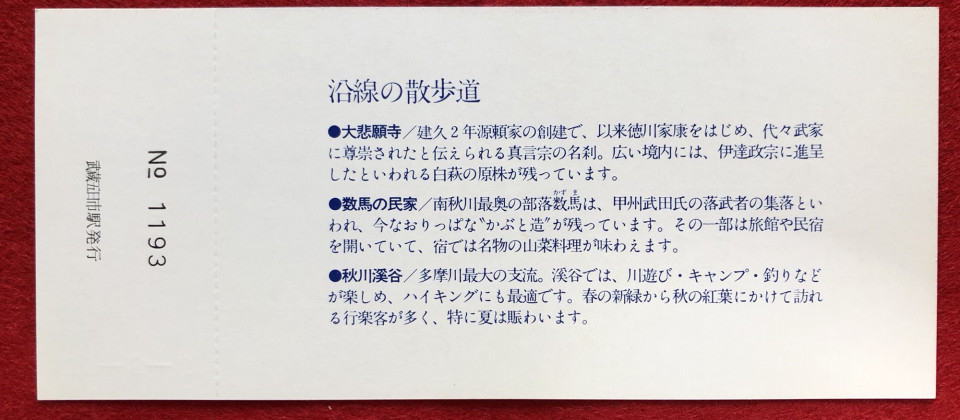 沿線の散歩道
●大悲願寺／建久2年源頼家の創建で、以来徳川家康をはじめ、代々武家
に尊崇されたと伝えられる真言宗の名刹。広い境内には、伊達政宗に進呈
したといわれる白萩の原株が残っています。
●数馬の民家／南秋川最奥の部落数馬は、甲州武田氏の落武者の集落とい
かずま
われ、今なおりっぱな〝かぶと造〟が残っています。その一部は旅館や民宿
を開いていて、宿では名物の山菜料理が味わえます。
●秋川溪谷／多摩川最大の支流。溪谷では、川遊び・キャンプ・釣りなど
が楽しめ、ハイキングにも最適です。春の新緑から秋の紅葉にかけて訪れ
る行楽客が多く、特に夏は賑わいます。
№ 1193
武蔵五日市駅発行